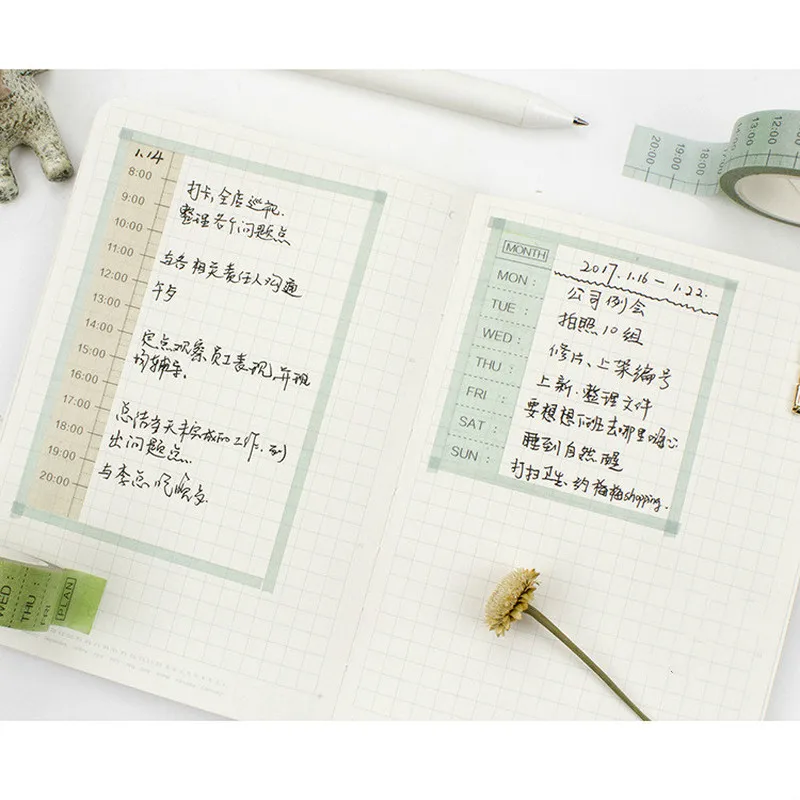 1.14
8:00
9:00
10:00
11:00
12:00
13:00
14:00
15:00
16:00
17:00
18:00
19:00
20:00
打卡,全店巡视.
整理各个问题点
与各相关责任人沟通
午夕
定点观察员工表现,并现
场辅导.
总结当天未完成的工作.列
出问题点.
与李总
MONTH
2017.1.16 — 1.22.
MON: 公司例会
TUE: 拍照10组
WED: 修片、上架编号
THU: 上新.整理文件
FRI: 要想想下班去哪里嗨心
SAT: 睡到自然醒
SUN: 打扫卫生.约梅梅shopping.
12:00
13:00
18:00
19:00
20:00
WED:
THU:
FRI
PLAN